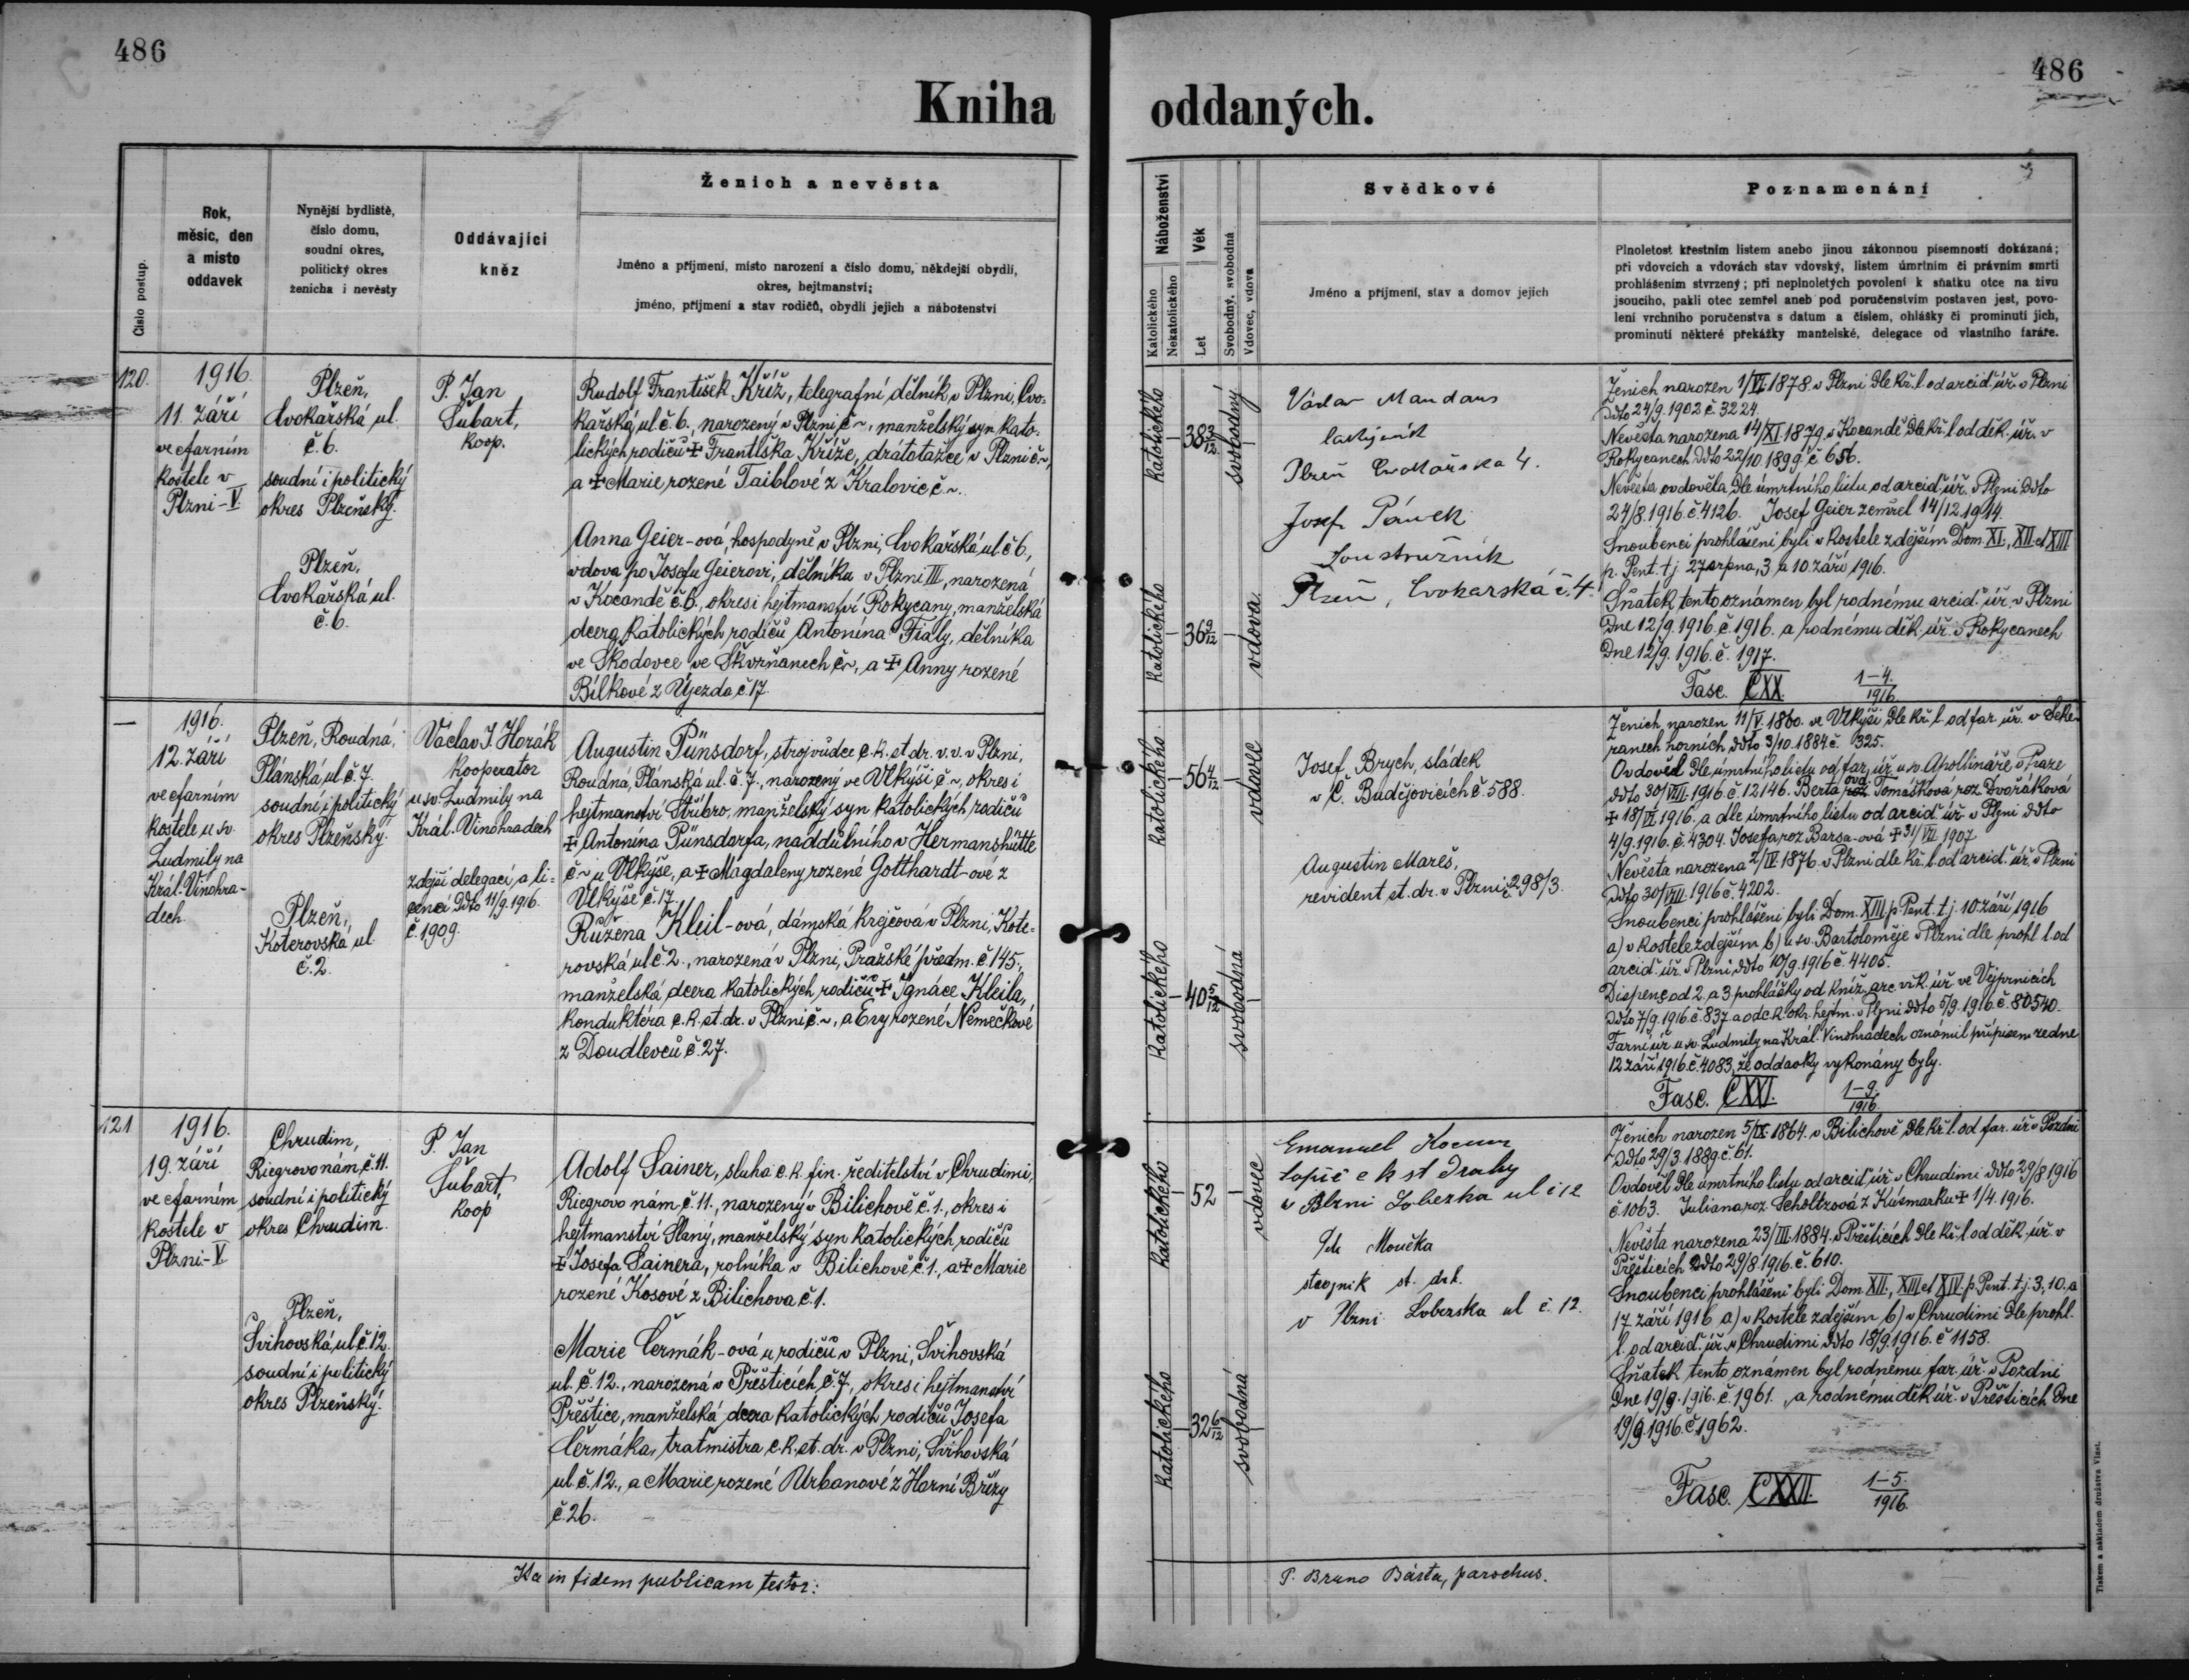 486
486
Kniha oddaných.
Číslo postup.
Rok,
měsíc, den
a místo
oddavek
Nynější bydliště,
číslo domu,
soudní okres,
politický okres
ženicha i nevěsty
Oddávající
kněz
Ženich a nevěsta
Jméno a příjmení, místo narození a číslo domu, někdejší obydlí,
okres, hejtmanství;
jméno, příjmení a stav rodičů, obydlí jejich a náboženství
Náboženství
Katolického
Nekatolického
Věk
Let
Svobodný, svobodná
Vdovec, vdova
Svědkové
Jméno a příjmení, stav a domov jejich
Poznamenání
Plnoletost křestním listem anebo jinou zákonnou písemností dokázaná;
při vdovcích a vdovách stav vdovský, listem úmrtním či právním smrti
prohlášením stvrzený; při neplnoletých povolení k sňatku otce na živu
jsoucího, pakli otec zemřel aneb pod poručenstvím postaven jest, povo-
lení vrchního poručenstva s datum a číslem, ohlášky či prominutí jich,
prominutí některé překážky manželské, delegace od vlastního faráře.
120.
1916.
11. září
ve farním
kostele v
Plzni-V
Plzeň,
Cvokařská ul.
č. 6.
soudní i politický
okres Plzeňský.
Plzeň,
Cvokařská ul.
č. 6.
P. Jan
Šubart,
koop.
Rudolf František Kříž, telegrafní dělník v Plzni, Cvo-
kařská ul. č. 6., narozený v Plzni č ~, manželský syn kato-
lických rodičů ✝ Františka Kříže, drátotažce v Plzni č ~,
a ✝ Marie rozené Taiblové z Kralovic č ~.
Anna Geier-ová, hospodyně v Plzni, Cvokařská ul č 6.,
vdova po Josefu Geierovi, dělníku v Plzni III, narozená
v Kocandě č. 6., okres i hejtmanství Rokycany, manželská
dcera katolických rodičů Antonína Fialy, dělníka
ve Škodovce ve Skvrňanech č ~, a ✝ Anny rozené
Bílkové z Újezda č. 17
katolického
38 3/12
svobodný
katolického
36 9/12
vdova
Václav Mandaus
Plzeň Cvokařská 4.
Josef Pánek
soustružník
Plzeň, Cvokarská č. 4.
Ženich narozen 1/VI. 1878 v Plzni dle kř. l. od arciď. úř. v Plzni
ddto 24/9. 1902 č. 3224.
Nevěsta narozena 14/XI. 1879 v Kocandě dle kř. l. od děk. úř. v
Rokycanech ddto 22/10. 1899 č 656.
Nevěsta ovdověla dle úmrtního listu od arciď. úř. v Plzni ddto
24/8. 1916 č. 4126. Josef Geier zemřel 14/12. 1914.
Snoubenci prohlášeni byli v kostele zdejším Dom. XI., XII. et XIII
p. Pent. t. j. 27 srpna, 3. a 10. září 1916.
Sňatek tento oznámen byl rodnému arciď. úř. v Plzni
dne 12/9. 1916. č. 1916. a rodnému děk. úř. v Rokycanech
dne 12/9. 1916. č. 1917.
Fasc. CXX. 1–4./1916.
—
1916.
12. září
ve farním
kostele u sv.
Ludmily na
Král. Vinohra-
dech.
Plzeň, Roudná,
Plánská ul č. 7.
soudní i politický
okres Plzeňský.
Plzeň,
Koterovská ul.
č. 2.
Václav J. Horák
kooperator
u sv. Ludmily na
Král. Vinohradech
zdejší delegací a li-
cencí ddto 11/9. 1916.
č. 1909.
Augustin Pünsdorf, strojvůdce c. k. st. dr. v. v. v Plzni,
Roudná, Plánská ul. č. 7., narozený ve Vlkýši č ~, okres i
hejtmanství Stříbro, manželský syn katolických rodičů
✝ Antonína Pünsdorfa, naddůlního v Hermanshütte
č ~ u Vlkýše, a ✝ Magdaleny rozené Gotthardt-ové z
Vlkýše č. 17.
Růžena Kleil-ová, dámská krejčová v Plzni, Kote-
rovská ul č. 2., narozená v Plzni, Pražské předm. č. 145.,
manželská dcera katolických rodičů ✝ Ignáce Kleila,
konduktéra c. k. st. dr. v Plzni č ~, a Evy rozené Němečkové
z Doudlevců č. 27.
katolického
56 4/12
vdovec
katolického
40 5/12
svobodná
Josef Brych, sládek
v Č. Budějovicích č. 588.
Augustin Mareš,
revident st. dr. v Plzni č. 298/3.
Ženich narozen 11/V. 1860. ve Vlkýši dle kř. l. od far. úř. v Seke-
řanech horních, ddto 3/10. 1884 č. 325.
Ovdověl dle úmrtního listu od far. úř. u sv. Apollináře v Praze
ddto 30/VIII. 1916 č. 12146. Berta roz. ovd. Tomášková roz. Dvořáková
✝ 18/VI. 1916. a dle úmrtního listu od arciď. úř. v Plzni ddto
4/9. 1916. č. 4304. Josefa roz. Barsa-ová ✝ 31/VII. 1907
Nevěsta narozena 2/IV. 1876. v Plzni dle kř. l. od arciď. úř. v Plzni
ddto 30/VIII. 1916 č. 4202.
Snoubenci prohlášeni byli Dom. XIII. p. Pent. t. j. 10. září 1916
a) v kostele zdejším b) u sv. Bartoloměje v Plzni dle prohl. l. od
arciď. úř. v Plzni, ddto 10/9. 1916 č. 4405.
Dispenc od 2. a 3 prohlášky od kníž. arc. vik. úř ve Vejprnicích
ddto 7/9. 1916. č. 837 a od c. k. okr. hejtm. v Plzni ddto 5/9. 1916. č. 80540.
Farní úř. u sv. Ludmily na Král. Vinohradech oznámil přípisem ze dne
12 září 1916 č. 4083, že oddavky vykonány byly.
Fasc. CXXI. 1–9./1916.
121
1916.
19. září
ve farním
kostele v
Plzni-V
Chrudim,
Riegrovo nám. č. 11.
soudní i politický
okres Chrudim.
Plzeň,
Švihovská ul č. 12.
soudní i politický
okres Plzeňský.
P. Jan
Šubart,
koop
Adolf Sainer, sluha c. k. fin. ředitelství v Chrudimi,
Riegrovo nám. č. 11., narozený v Bilichově č. 1., okres i
hejtmanství Slaný, manželský syn katolických rodičů
✝ Josefa Sainera, rolníka v Bilichově č. 1., a ✝ Marie
rozené Kosové z Bilichova č. 1.
Marie Čermák-ová u rodičů v Plzni, Švihovská
ul. č. 12., narozená v Přešticích č. 7., okres i hejtmanství
Přeštice, manželská dcera katolických rodičů Josefa
Čermáka, traťmistra c. k. st. dr. v Plzni, Švihovská
ul č. 12., a Marie rozené Urbanové z Horní Břízy
č. 26.
katolického
52
vdovec
katolického
32 6/12
svobodná
Emanuel Kocum
topič c k st Drahy
v Plzni Lobezka ul č 12
Moučka
strojník st. drh.
v Plzni Lobezska ul č. 12.
Ženich narozen 5/IX. 1864. v Bilichově dle kř. l. od far. úř. v Pozdni
ddto 29/3. 1889 č. 61.
Ovdověl dle úmrtního listu od arciď. úř v Chrudimi ddto 29/8 1916
č. 1063. Juliana roz. Scholtzová z Käsmarku ✝ 1/4. 1916.
Nevěsta narozena 23/III. 1884. v Přešticích dle kř. l. od děk. úř. v
Přešticích ddto 29/8. 1916. č. 610.
Snoubenci prohlášeni byli Dom XII., XIII. et XIV. p. Pent. t. j. 3., 10. a
17. září 1916 a) v kostele zdejším b) v Chrudimi dle prohl.
l. od arciď. úř. v Chrudimi ddto 18/9. 1916. č 1158.
Sňatek tento oznámen byl rodnému far. úř. v Pozdni
dne 19/9. 1916. č. 1961. a rodnému děk úř. v Přešticích dne
19/9. 1916. č. 1962.
Fasc. CXXII. 1–5./1916.
Ita in fidem publicam testor:
P. Bruno Bárta, parochus.
Tiskem a nákladem družstva Vlast.